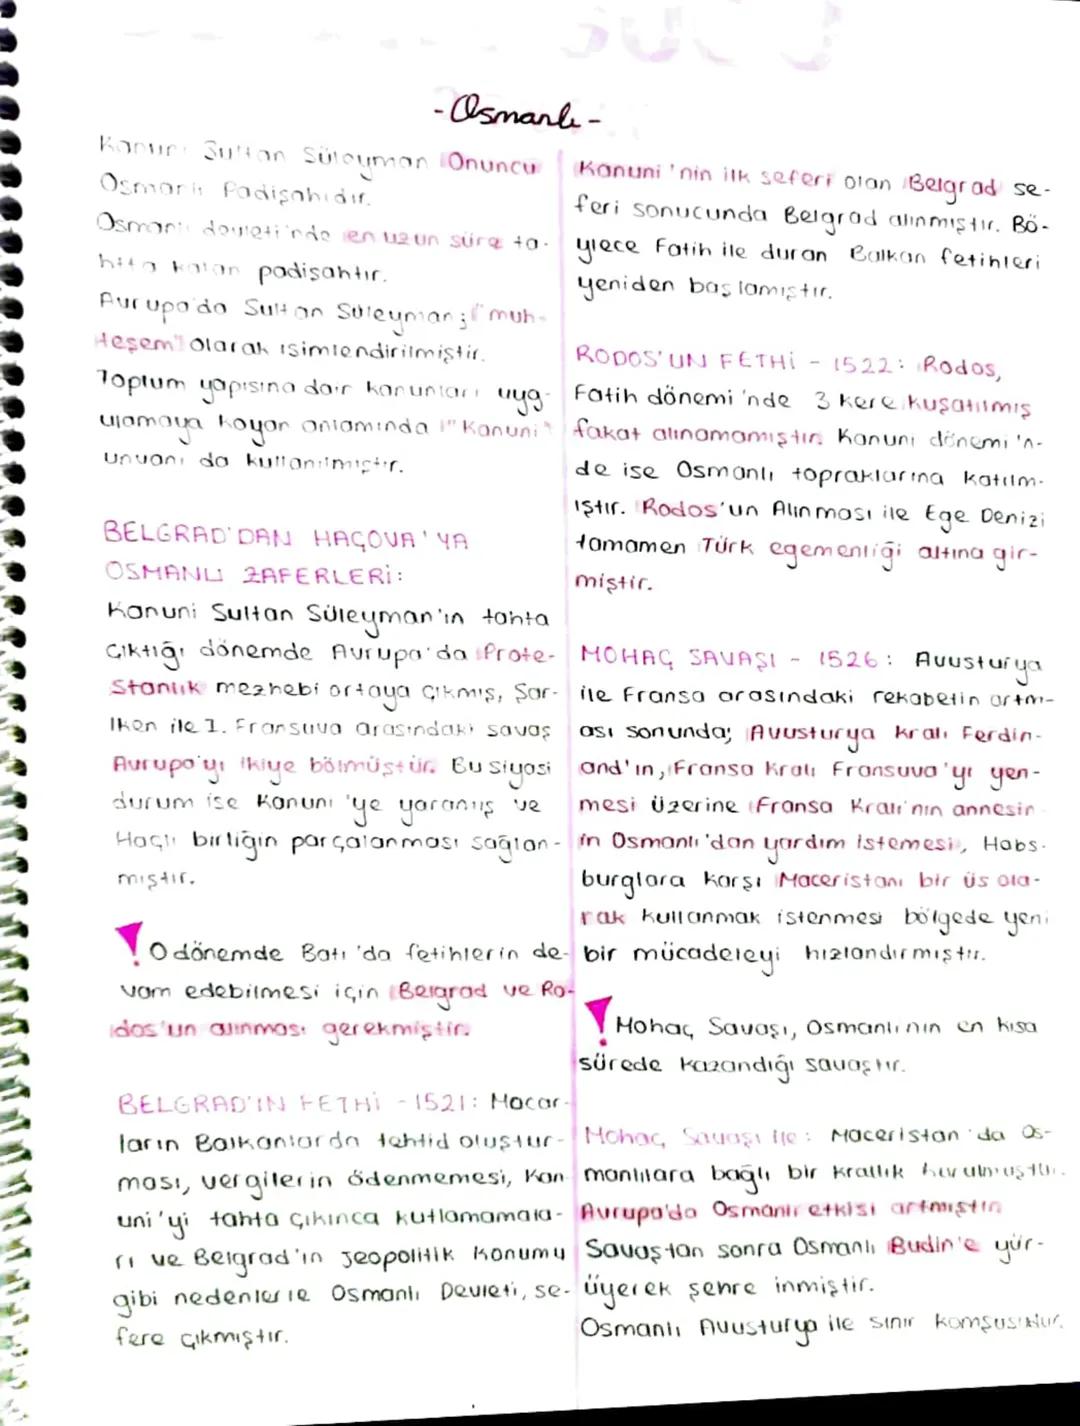 -Osmanlı-
Kanuni Sultan Süleyman Onuncu
Osmanlı Padişahıdır.
Osmanlı devleti'nde en uzun süre ta-
htta kalan padişahtır.
Avrupa'da Sultan Süleyman; "muh-
teşem" olarak isimlendirilmiştir.
Toplum yapısına dair kanunları uyg-
ulamaya koyan anlamında "Kanuni"
unvanı da kullanılmıştır.
BELGRAD'DAN HAÇOVA'YA
OSMANLI ZAFERLERİ:
Kanuni Sultan Süleyman'ın tahta
çıktığı dönemde Avrupa'da Prote-
stanlık mezhebi ortaya çıkmış, Şar-
lken ile I. Fransuva arasındaki savaş
Avrupa'yı ikiye bölmüştür. Bu siyasi
durum ise Kanuni'ye yaramış ve
Haçlı birliğin parçalanması sağlan-
mıştır.
! O dönemde Batı'da fetihlerin de-
vam edebilmesi için Belgrad ve Ro-
dos'un alınması gerekmiştir.
BELGRAD'IN FETHİ - 1521: Macar-
ların Balkanlarda tehtid oluştur-
ması, vergilerin ödenmemesi, Kan-
uni'yi tahta çıkınca kutlamamala-
rı ve Belgrad'ın jeopolitik konumu
gibi nedenlerle Osmanlı Devleti, se-
fere çıkmıştır.
Kanuni'nin ilk seferi olan Belgrad se-
feri sonucunda Belgrad alınmıştır. Bö-
ylece Fatih ile duran Balkan fetihleri
yeniden başlamıştır.
RODOS'UN FETHİ - 1522: Rodos,
Fatih dönemi'nde 3 kere kuşatılmış
fakat alınamamıştır. Kanuni dönemi'n-
de ise Osmanlı topraklarına katılm-
ıştır. Rodos'un Alınması ile Ege Denizi
tamamen Türk egemenliği altına gir-
miştir.
MOHAÇ SAVAŞI - 1526: Avusturya
ile Fransa arasındaki rekabetin artm-
ası sonunda; Avusturya kralı Ferdin-
and'ın, Fransa Kralı Fransuva'yı yen-
mesi üzerine Fransa Kralı'nın annesin-
in Osmanlı'dan yardım istemesi, Habs-
burglara karşı Maceristanı bir üs ola-
rak kullanmak istenmesi bölgede yeni
bir mücadeleyi hızlandırmıştır.
! Mohaç Savaşı, Osmanlının en kısa
sürede kazandığı savaştır.
Mohaç Savaşı ile: Maceristan'da Os-
manlılara bağlı bir krallık kurulmuştur.
Avrupa'da Osmanlı etkisi artmıştır.
Savaştan sonra Osmanlı Budin'e yür-
üyerek şehre inmiştir.
Osmanlı Avusturya ile sınır komşusudur.